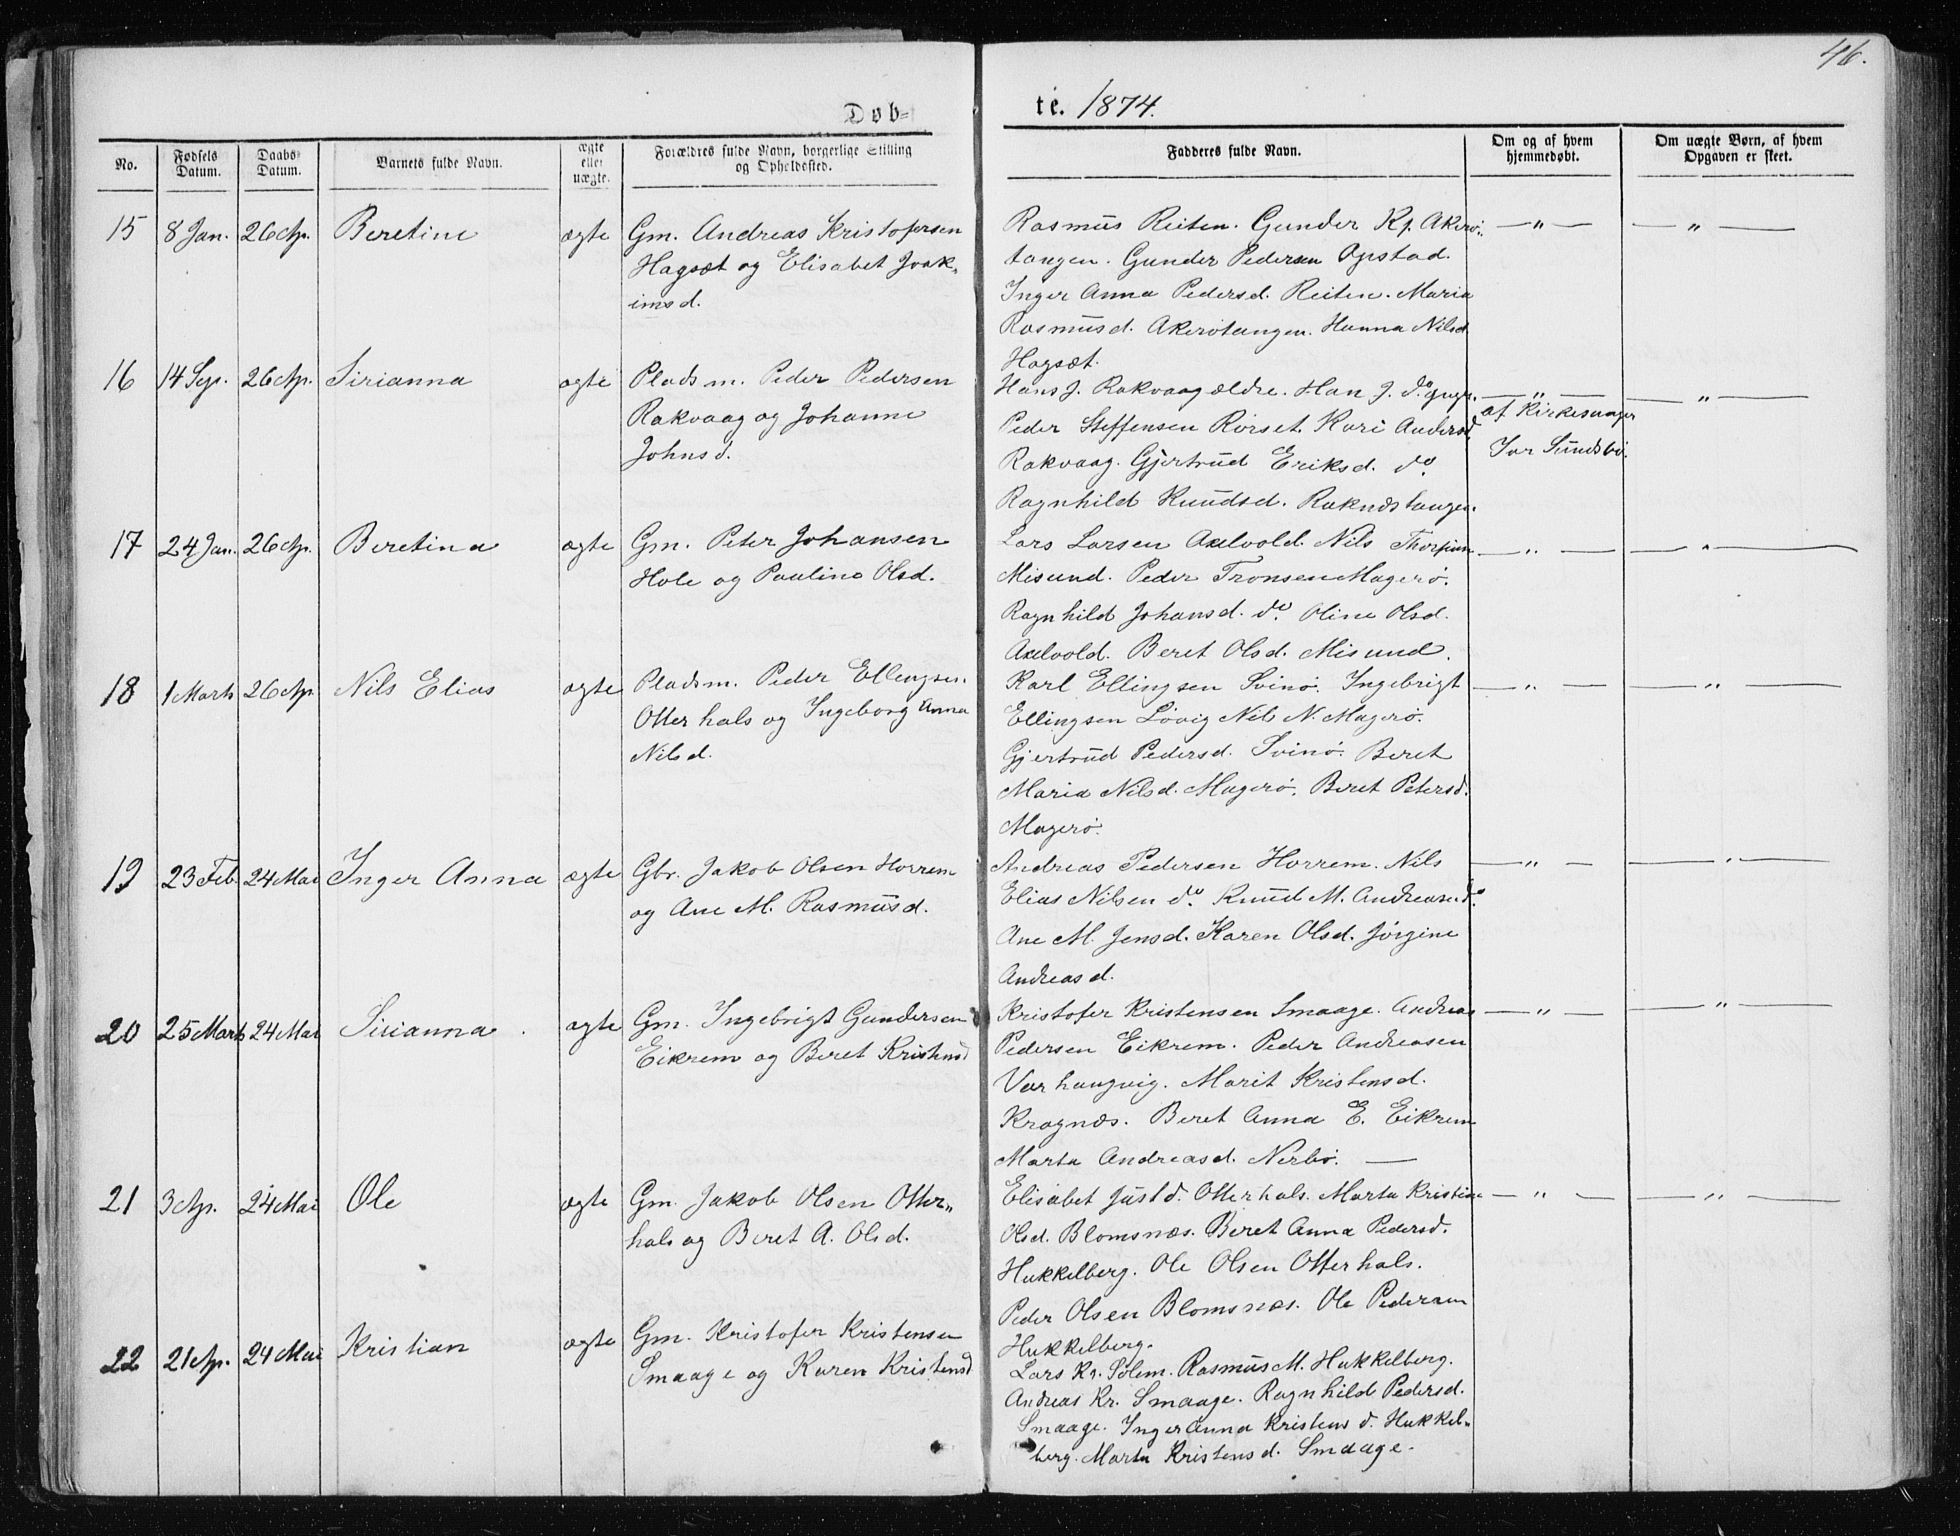 46.
Døb-
te. 1874.
No.
Fødsels Datum.
Daabs- Datum.
Barnets fulde Navn.
ægte eller uægte.
Forældres fulde Navn, borgerlige Stilling og Opholdssted.
Fadderes fulde Navn.
Om og af hvem hjemmedøbt.
Om uægte Børn, af hvem Opgaven er skeet.
15 8 Jan. 26 Ap. Beretine ægte Gm. Andreas Kristofersen
Hagsæt og Elisabet Joak-
imsd.
Rasmus Reiten. Gunder Kp. Akerø- — " — — " —
tangen. Gunder Pedersen Opstad.
Inger Anna Pedersd. Reiten. Maria
Rasmusd. Akerøtangen. Hanna Nilsd.
Hagsæt.
16 14 Sep. 26 Ap. Sirianna ægte Pladsm. Peder Pedersen
Rakvaag og Johanne
Johnsd.
Hans J. Rakvaag ældre. Han J. do yngr. — " — — " —
Peder Steffensen Rørset. Kari Andersd. af Kirkesanger
Rakvaag. Gjertrud Eriksd. do Ivr Sundsbø.
Ragnhild Knudsd. Raknæstangen.
17 24 Jan. 26 Ap. Beretina ægte Gm. Peter Johansen
Hole og Pauline Olsd.
Lars Larsen Axelvold. Nils Thorfinn — " — — " —
Misund. Peder Tronsen Magerø.
Ragnhild Johansd. do Oline Olsd.
Axelvold. Beret Olsd. Misund.
18 1 Marts 26 Ap. Nils Elias ægte Pladsm. Peder Ellingsen.
Otterhals og Ingeborg Anna
Nilsd.
Karl Ellingsen Svinø. Ingebrigt — " — — " —
Ellingsen Løvig Nils N. Magerø.
Gjertrud Pedersd. Svinø. Beret
Maria Nilsd. Magerø. Beret Petersd.
Magerø.
19 23 Feb. 24 Mai Inger Anna ægte Gbr. Jakob Olsen Horrem
og Ane M. Rasmusd.
Andreas Pedersen Horrem. Nils — " — — " —
Elias Nilsen do. Knud M. Andreasen do
Ane M. Jensd. Karen Olsd. Jørgine
Andreasd.
20 25 Marts 24 Mai Sirianna. ægte Gm. Ingebrigt Gundersen
Eikrem og Beret Kristensd
Kristofer Kristensen Smaage. Andreas — " — — " —
Pedersen Eikrem. Peder Andreasen
Varhaugvig. Marit Kristensd.
Kragnæs. Beret Anna E. Eikrem
Marta Andreasd. Nerbø. —
21 3 Ap. 24 Mai Ole ægte Gm. Jakob Olsen Otter-
hals og Beret A. Olsd.
Elisabet Justd. Otterhals. Marta Kristine — " — — " —
Olsd. Blomsnæs. Beret Anna Pedersd.
Hukkelberg. Ole Olsen Otterhals.
Peder Olsen Blomsnæs. Ole Pedersen
Hukkelberg.
22 21 Ap. 24 Mai Kristian ægte Gm. Kristofer Kristensen
Smaage og Karen Kristensd
Lars Kr. Solem. Rasmus M. Hukkelberg.
Andreas Kr. Smaage. Ragnhild Pedersd.
Smaage. Inger Anna Kristensd. Hukkel-
berg. Marta Kristensd. Smaage.